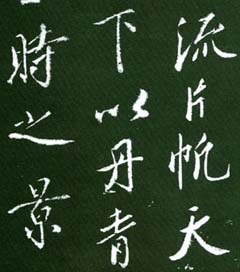 流片帆天
下以丹青
時之景